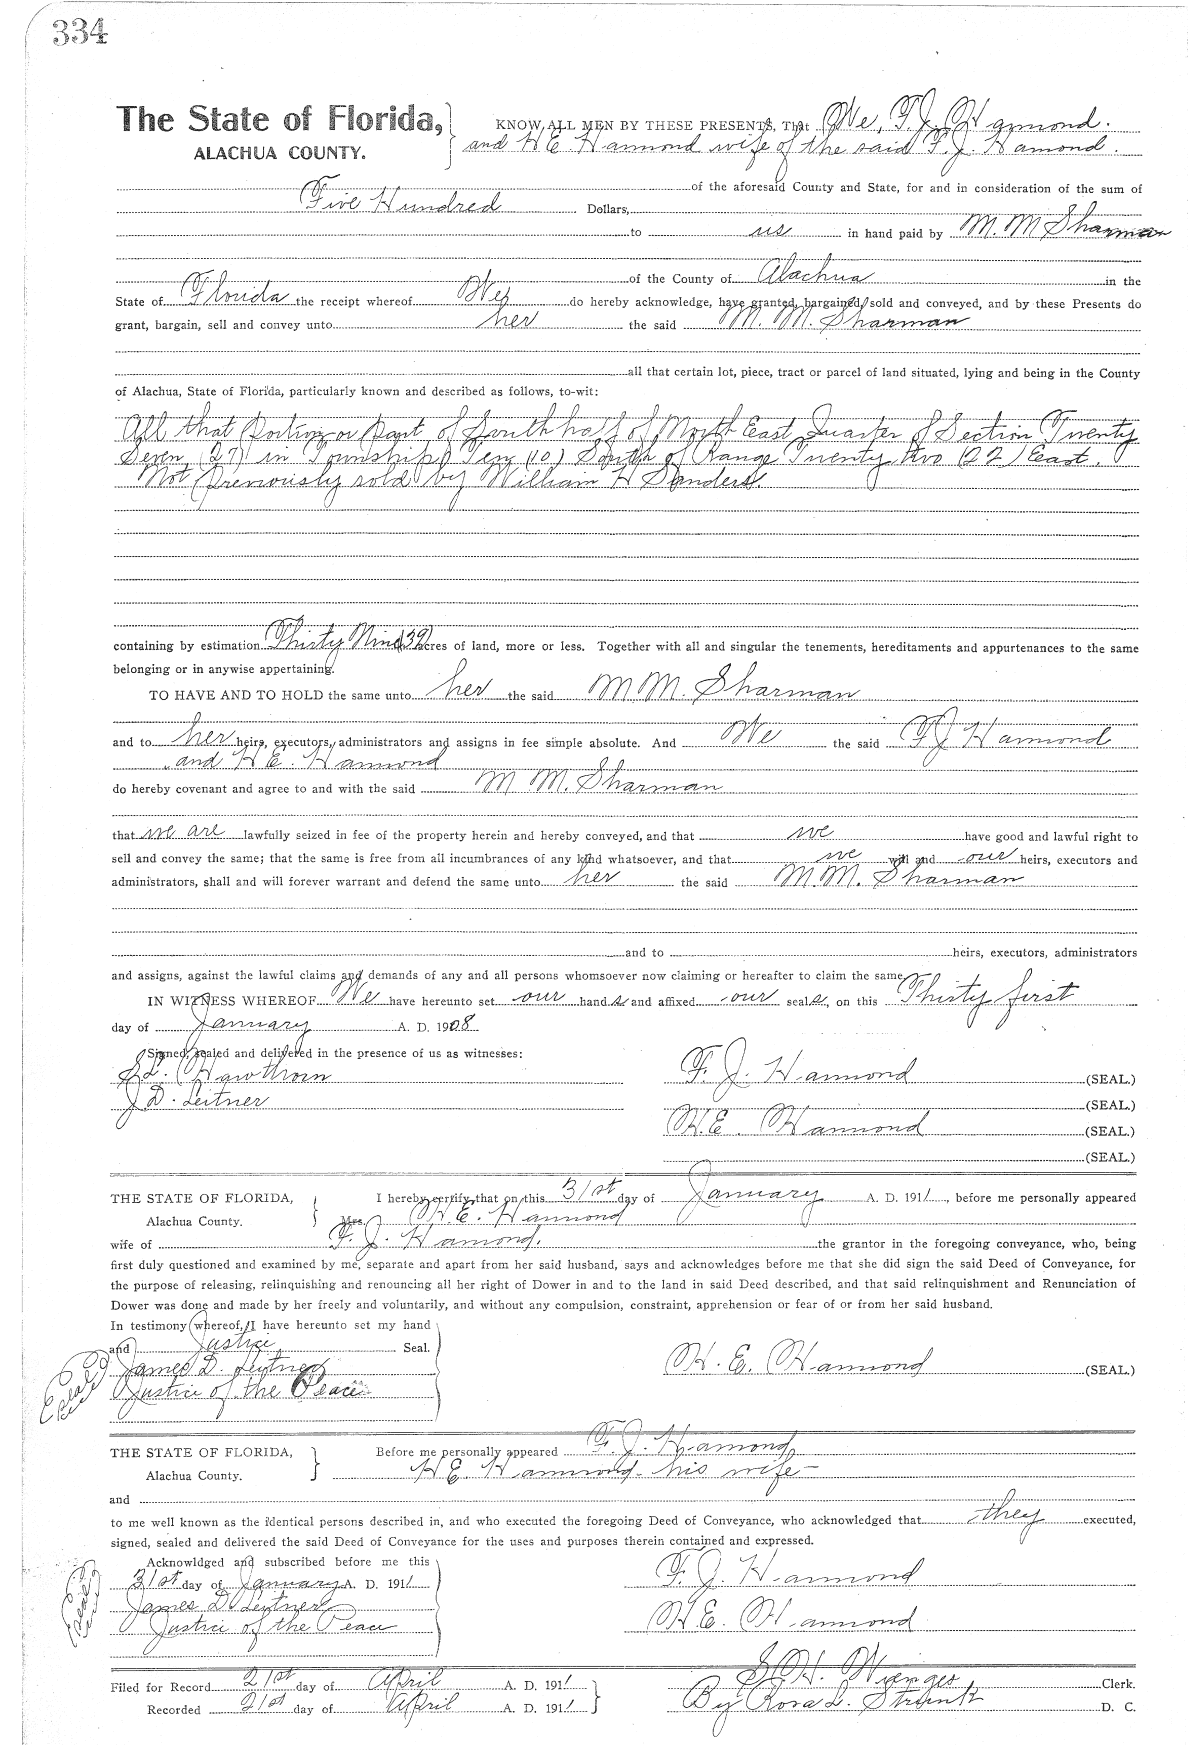 334
The State of Florida, KNOW ALL MEN BY THESE PRESENTS, That We, F. J. Hammond.
ALACHUA COUNTY. and H E Hammond wife of the said F. J. Hamond.
of the aforesaid County and State, for and in consideration of the sum of
Five Hundred Dollars,
to us in hand paid by M. M Sharman
of the County of Alachua in the
State of Florida the receipt whereof We do hereby acknowledge, have granted, bargained, sold and conveyed, and by these Presents do
grant, bargain, sell and convey unto her the said M. M. Sharman
all that certain lot, piece, tract or parcel of land situated, lying and being in the County
of Alachua, State of Florida, particularly known and described as follows, to-wit:
All that Portion or Part of South half of North East Quarter of Section Twenty
Seven (27) in Township Ten (10) South of Range Twenty two (22) East.
Not Previously sold by William H Sanders.
containing by estimation Thirty Nine (39) acres of land, more or less. Together with all and singular the tenements, hereditaments and appurtenances to the same
belonging or in anywise appertaining.
TO HAVE AND TO HOLD the same unto her the said M M. Sharman
and to her heirs, executors, administrators and assigns in fee simple absolute. And We the said F J Hammond
and H E. Hammond
do hereby covenant and agree to and with the said M M. Sharman
that we are lawfully seized in fee of the property herein and hereby conveyed, and that we have good and lawful right to
sell and convey the same; that the same is free from all incumbrances of any kind whatsoever, and that we will and our heirs, executors and
administrators, shall and will forever warrant and defend the same unto her the said M. M. Sharman
and to heirs, executors, administrators
and assigns, against the lawful claims and demands of any and all persons whomsoever now claiming or hereafter to claim the same.
IN WITNESS WHEREOF We have hereunto set our hands and affixed our seals, on this Thirty first
day of January A. D. 1908
Signed, sealed and delivered in the presence of us as witnesses:
S L. Hawthorn F. J. Hammond (SEAL.)
J D. Leitner (SEAL.)
H. E. Hammond (SEAL.)
(SEAL.)
THE STATE OF FLORIDA, I hereby certify that on this 31st day of January A. D. 1911, before me personally appeared
Alachua County. Mrs. H. E. Hammond
wife of F. J. Hamond. the grantor in the foregoing conveyance, who, being
first duly questioned and examined by me, separate and apart from her said husband, says and acknowledges before me that she did sign the said Deed of Conveyance, for
the purpose of releasing, relinquishing and renouncing all her right of Dower in and to the land in said Deed described, and that said relinquishment and Renunciation of
Dower was done and made by her freely and voluntarily, and without any compulsion, constraint, apprehension or fear of or from her said husband.
In testimony whereof, I have hereunto set my hand
and Justice Seal.
James D. Leitner H. E. Hammond (SEAL.)
Justice of the Peace
THE STATE OF FLORIDA, Before me personally appeared F. J. Hamond
Alachua County. H E. Hammond his wife
and
to me well known as the identical persons described in, and who executed the foregoing Deed of Conveyance, who acknowledged that they executed,
signed, sealed and delivered the said Deed of Conveyance for the uses and purposes therein contained and expressed.
Acknowldged and subscribed before me this
31st day of January A. D. 1911 F. J. Hammond
James D Leitner
Justice of the Peace H. E. Hammond
Filed for Record 21st day of April A. D. 1911 S. H. Wienges Clerk.
Recorded 21st day of April A. D. 1911 By Rosa L. Strunk D. C.